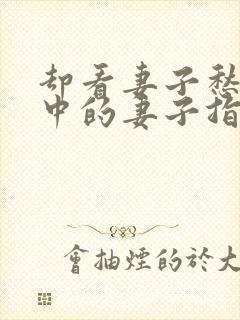 却看妻子愁
中的妻子指
會抽煙的於大